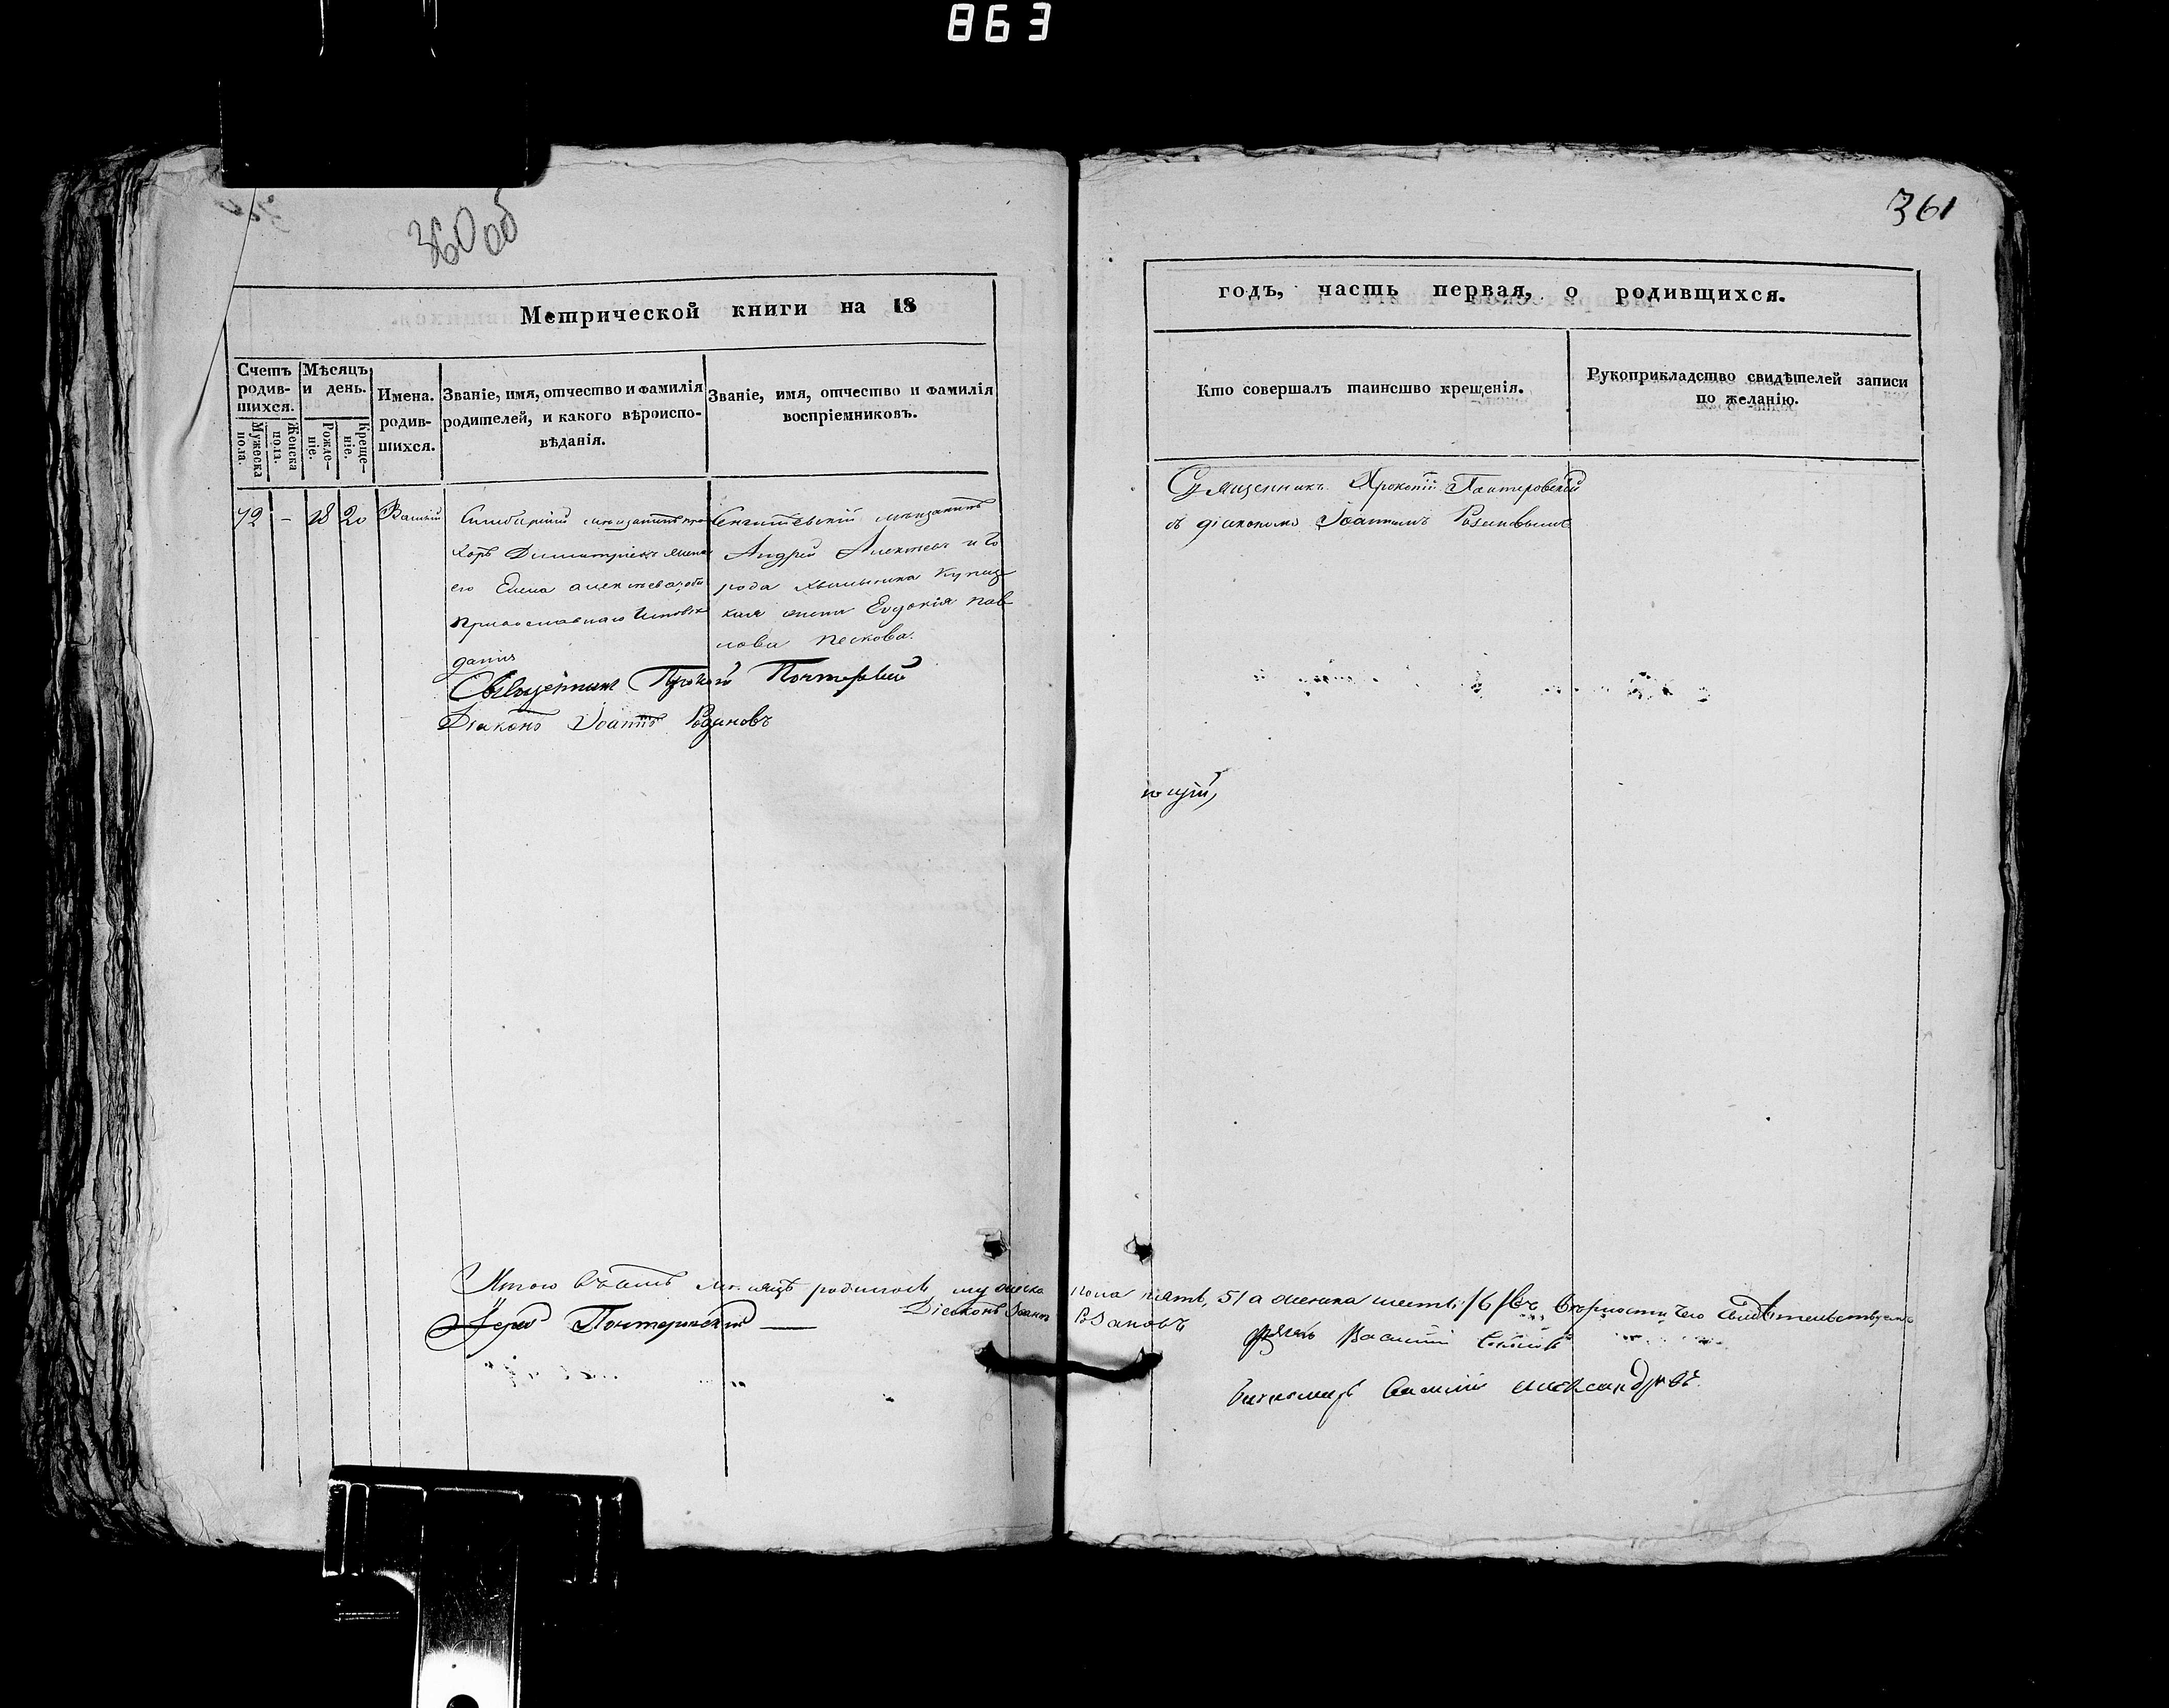 863
360 об
361
Метрической книги на 18
годъ, часть первая, о родившихся.
Счетъ родив-шихся.
Мужеска пола.
Женска пола.
Мѣсяцъ и день.
Рожде-ніе.
Креще-ніе.
Имена. родив-шихся.
Званіе, имя, отчество и фамилія
родителей, и какого вѣроиспо-
вѣданія.
Званіе, имя, отчество и фамилія
воспріемниковъ.
Кто совершалъ таинство крещенія.
Рукоприкладство свидѣтелей записи
по желанію.
12 - 18 20 Василій
Симбирскій мѣщанинъ про
хоръ Димитріевъ жена
его Елена алексѣева, оба
православнаго исповѣ
данія
мѣщанинъ
Андрей Алексѣевъ и го
рода хвалынска купец
кая жена Евдокія пав
лова пескова.
Священникъ Прокопій Понтеровскій
съ діакономъ Іоанномъ Розановымъ
Священникъ Прокопій
Діаконъ Іоаннъ Розановъ
Итого въ мѣсяцѣ родилось мужеска пола пять, 5/ а женска шесть /6/ въ вѣрности чего свидѣтельствуемъ
Іерей Понтеровскій
Діаконъ Іоаннъ Розановъ
Василій
Василій Александровъ